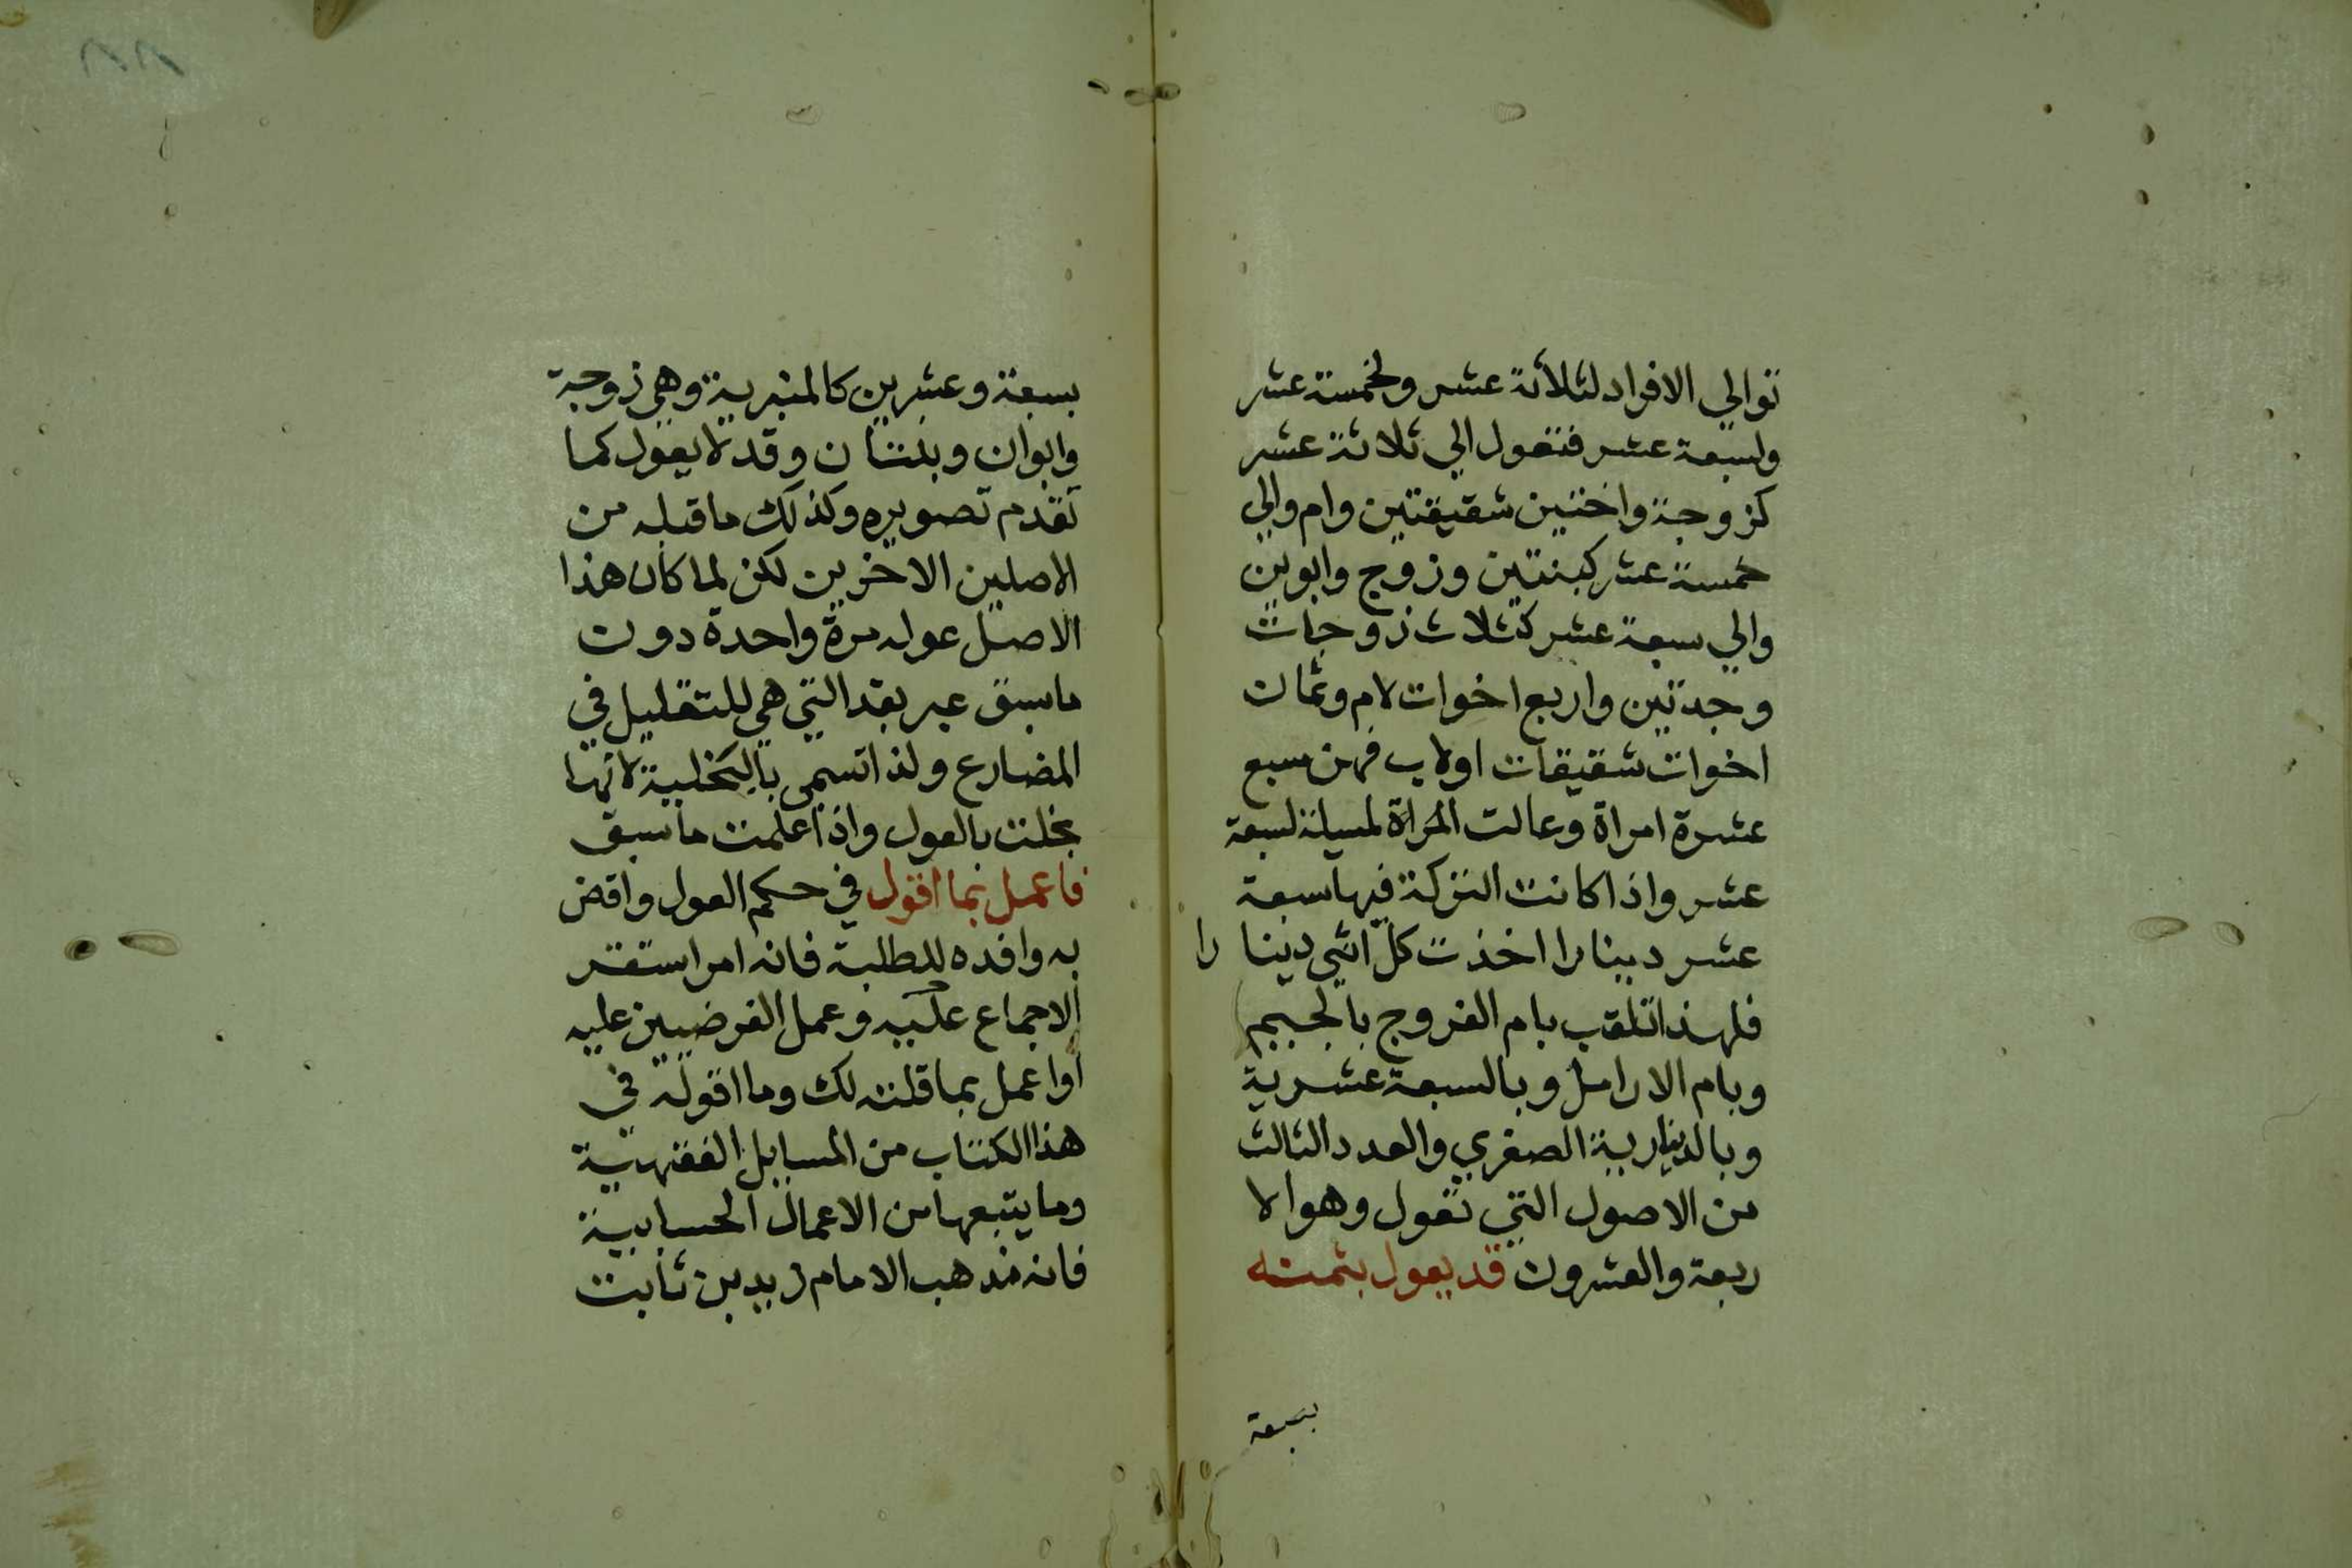 توالي الافراد لثلاثة عشر ولخمسة عشر
ولسبعة عشر فتعول الي ثلاثة عشر
كزوجة واختين شقيقتين وام والي
خمسة عشر كبنتين وزوج وابوين
والي سبعة عشر كثلاث زوجات
وجدتين واربع اخوات لام وثمان
اخوات شقيقات اولاب فهن سبع
عشرة امراة وعالت المسيلة لسبعة
عشر واذا كانت التركة فيها سبعة
عشر دينارا اخذت كل انثي دينا را
فلهذا تلقب بام الفروج بالجيم
وبام الارامل وبالسبعة عشرية
وبالدينارية الصغري والعدد الثالث
من الاصول التي تعول وهو الا
ربعة والعشرون قد يعول بثمنه
بسبعة
بسبعة وعشرين كالمنبرية وهي زوجة
وابوان وبنتان وقد لا يعول كما
تقدم تصويره وكذلك ما قبله من
الاصلين الاخرين لكن لما كان هذا
الاصل عوله مرة واحدة دون
ما سبق عبر بقد التي هي للتقليل في
المضارع ولذا تسمي بالبخلية لانها
بخلت بالعول واذا علمت ما سبق
فاعمل بما اقول في حكم العول واقض
به وافده للطلبة فانه امر استقر
الاجماع عليه وعمل الفرضيين عليه
او اعمل بما قلته لك وما اقوله في
هذا الكتاب من المسايل الفقهية
وما يتبعها من الاعمال الحسابية
فانه مذهب الامام زيد بن ثابت